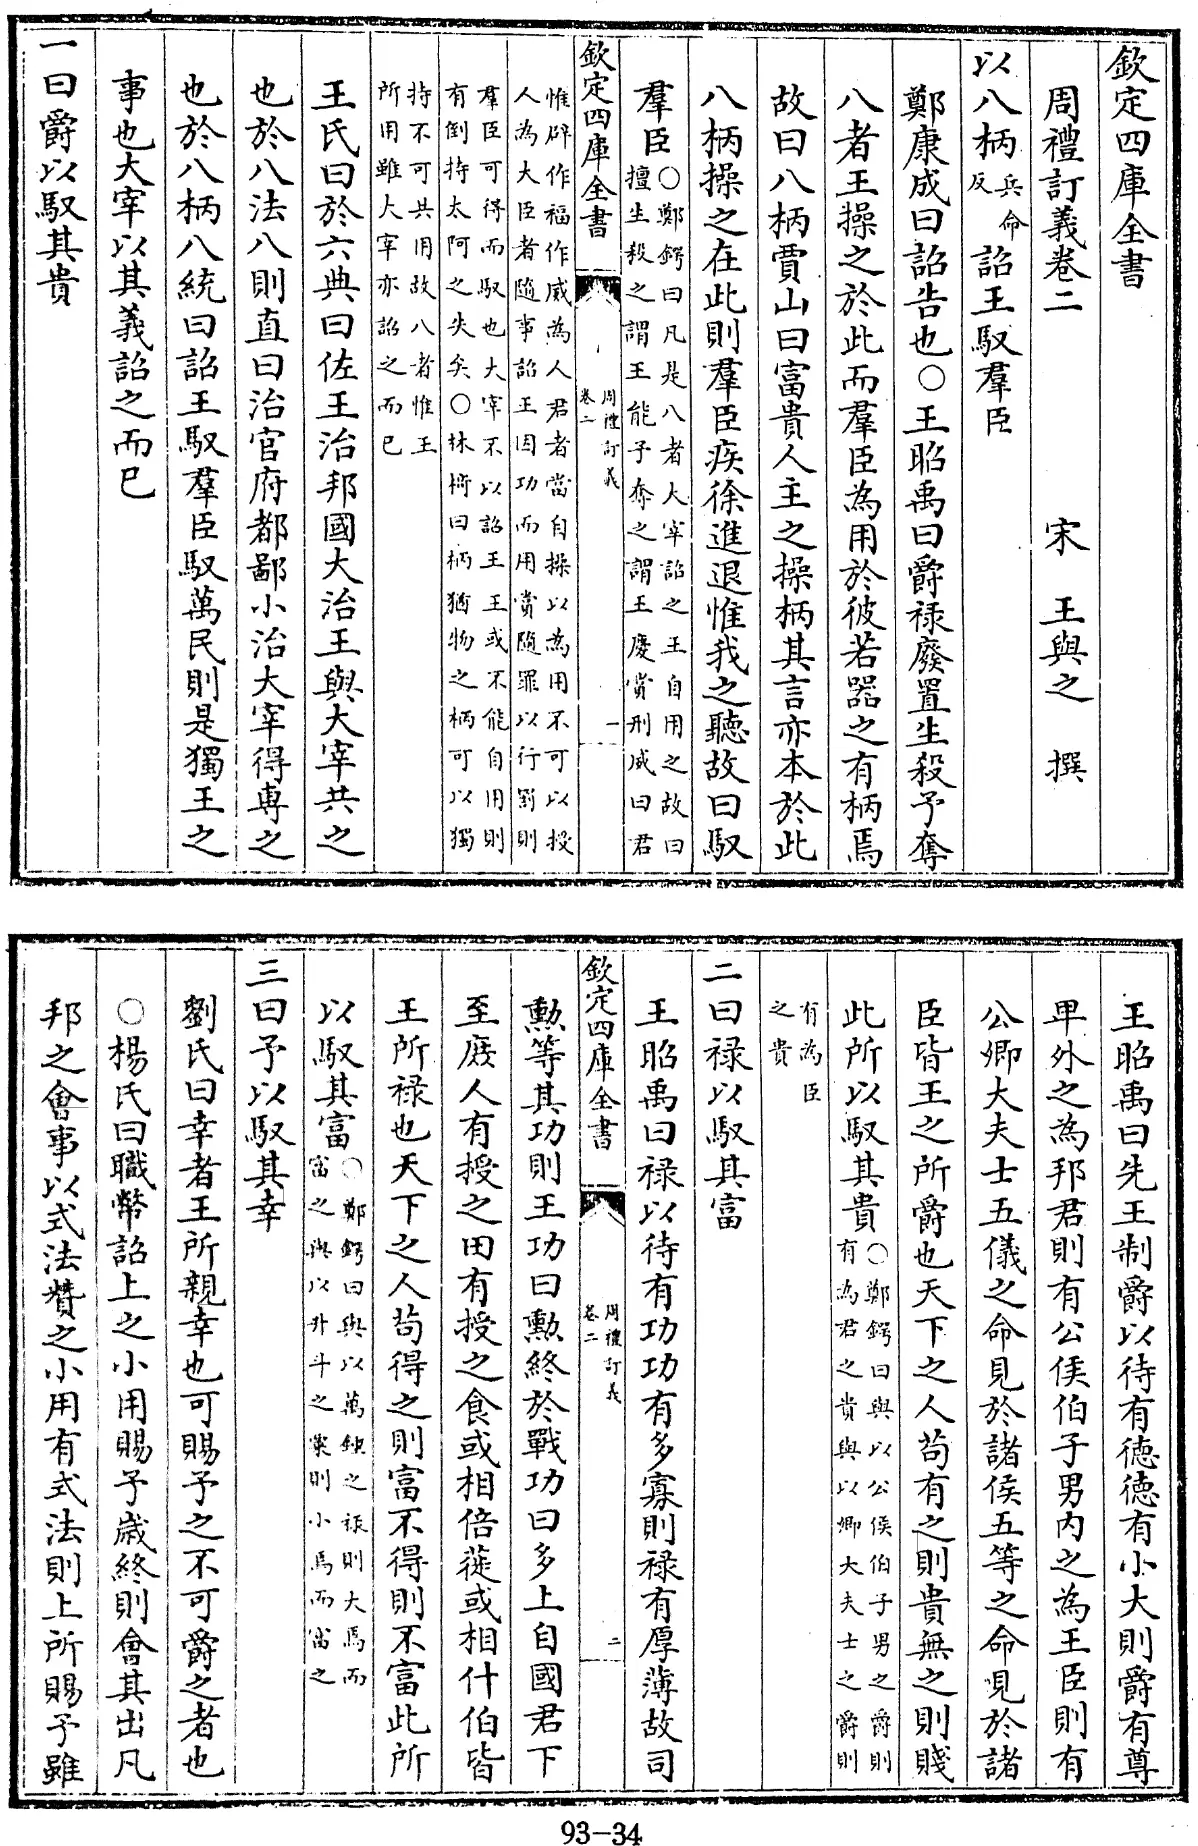 欽定四庫全書
周禮訂義卷二 宋 王與之 撰
以八柄兵命反詔王馭羣臣
鄭康成曰詔告也○王昭禹曰爵祿廢置生殺予奪
八者王操之於此而羣臣為用於彼若器之有柄焉
故曰八柄賈山曰富貴人主之操柄其言亦本於此
八柄操之在此則羣臣疾徐進退惟我之聽故曰馭
羣臣○鄭鍔曰凡是八者大宰詔之王自用之故曰擅生殺之謂王能予奪之謂王慶賞刑威曰君
欽定四庫全書 周禮訂義卷二 一
惟辟作福作威為人君者當自操以為用不可以授人為大臣者隨事詔王因功而用賞隨罪以行罰則
羣臣可得而馭也大宰不以詔王王或不能自用則有倒持太阿之失矣○林椅曰柄猶物之柄可以獨
持不可共用故八者惟王所用雖大宰亦詔之而已
王氏曰於六典曰佐王治邦國大治王與大宰共之
也於八法八則直曰治官府都鄙小治大宰得專之
也於八柄八統曰詔王馭羣臣馭萬民則是獨王之
事也大宰以其義詔之而已
一曰爵以馭其貴
王昭禹曰先王制爵以待有德德有小大則爵有尊
卑外之為邦君則有公侯伯子男內之為王臣則有
公卿大夫士五儀之命見於諸侯五等之命見於諸
臣皆王之所爵也天下之人茍有之則貴無之則賤
此所以馭其貴○鄭鍔曰與以公侯伯子男之爵則有為君之貴與以卿大夫士之爵則
有為臣之貴
二曰祿以馭其富
王昭禹曰祿以待有功功有多寡則祿有厚薄故司
欽定四庫全書 周禮訂義卷二 二
勲等其功則王功曰勲終於戰功曰多上自國君下
至庶人有授之田有授之食或相倍蓰或相什伯皆
王所祿也天下之人茍得之則富不得則不富此所
以馭其富○鄭鍔曰與以萬鍾之祿則大焉而富之與以升斗之廩則小焉而富之
三曰予以馭其幸
劉氏曰幸者王所親幸也可賜予之不可爵之者也
○楊氏曰職幣詔上之小用賜予歲終則會其出凡
邦之會事以式法贊之小用有式法則上所賜予雖
93-34